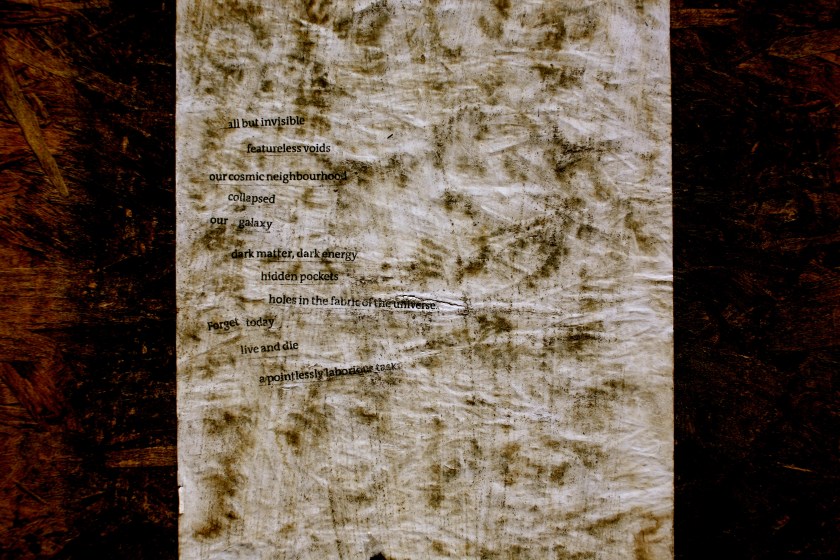 all but invisible
featureless voids
our cosmic neighbourhood
collapsed
our galaxy
dark matter, dark energy
hidden pockets
holes in the fabric of the universe.
Forget today
live and die
a pointlessly laboriour tasks